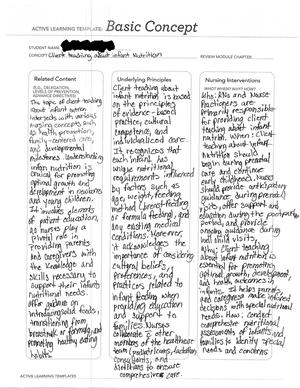 ACTIVE LEARNING TEMPLATE: Basic Concept
STUDENT NAME
CONCEPT Client teaching about infant Nutrition
REVIEW MODULE CHAPTER
Related Content
(E.G., DELEGATION,
LEVELS OF PREVENTION,
ADVANCE DIRECTIVES)
The topic of client teaching
about infant nutrition
intersects with various
nursing concepts such
as health promotion,
family-centered care,
and developmental
milestones. Understanding
infant nutrition is
crucial for promoting
optimal growth and
development in newborns
and young children.
It involves elements
of patient education,
as nurses play a
pivotal role in
providing parents
and caregivers with
the knowledge and
skills necessary to
support their infants
nutritional needs.
offer guidance on
introducing solid foods,
transitioning from
breastmilk or formula, and
promoting healthy eating
habits
Underlying Principles
Client teaching about
infant nutrition is based
on the principles
of evidence-based
practice, cultural
competence, and
individualized care.
It recognizes that
each infant has
unique nutritional
requirements influenced
by factors such as
age, weight, feeding
method (breast-feeding
or formula feeding), and
any existing medical
conditions. Moreover,
it acknowledges the
importance of considering
cultural beliefs,
preferences, and
practices related to
infant feeding when
providing education
and support to
families. Nurses
collaborate with other
members of the healthcare
team (pediatricians, lactation
consultants, and
dietitians to ensure
comprehensive care.
Nursing Interventions
WHO? WHEN? WHY? HOW?
Who: RNs and Nurse
Practioners are
primarily responsible
for providing client
teaching about infant
nutrition. When: Client
teaching about infant
Nutrition should
begin during prenatal
care and continue
early childhood. Nurses
should provide anticipatory
guidance during prenatal
visits, offer support and
education during the postpartum
period, and provide
ongoing guidance during
well child visits.
Why: Client teaching
about infant nutrition is
essential for promoting
optimal growth, development,
and health outcomes in
infants. It helps parents
and caregivers make informed
decisions with special nutritional
needs. How: conduct
comprehensive nutritional
assessments of infants and
families to identify specific
needs and concerns
ACTIVE LEARNING TEMPLATES